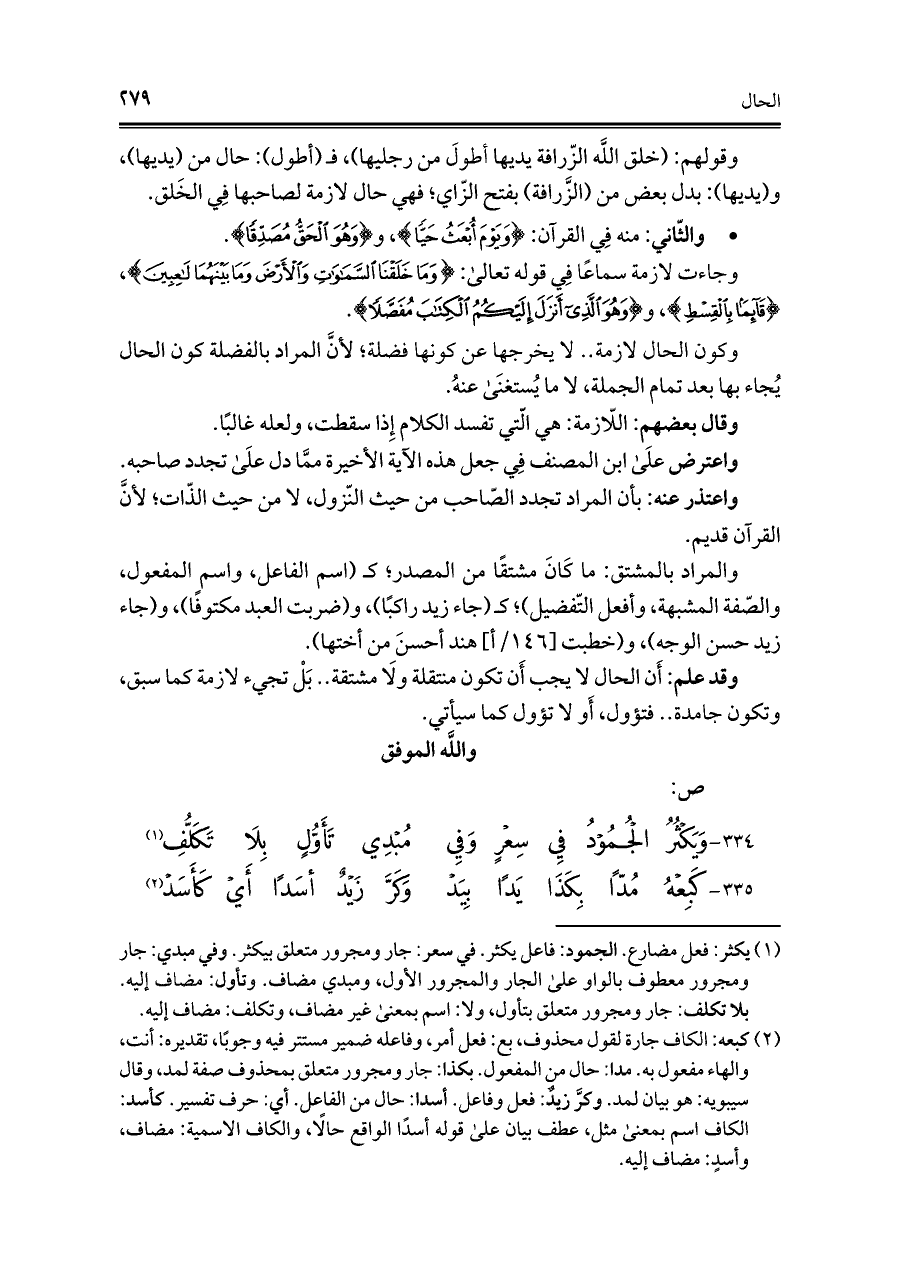 الحال
٢٧٩
وقولهم: (خلق اللَّه الزّرافة يديها أطولَ من رجليها)، فـ (أطول): حال من (يديها)،
و(يديها): بدل بعض من (الزَّرافة) بفتح الزّاي؛ فهي حال لازمة لصاحبها فِي الخَلق.
• والثّاني: منه فِي القرآن: ﴿وَيَوْمَ أُبْعَثُ حَيًّا﴾، و﴿وَهُوَ ٱلْحَقُّ مُصَدِّقًا﴾.
وجاءت لازمة سماعًا فِي قوله تعالىٰ: ﴿وَمَا خَلَقْنَا ٱلسَّمَٰوَٰتِ وَٱلْأَرْضَ وَمَا بَيْنَهُمَا لَٰعِبِينَ﴾،
﴿قَآئِمًۢا بِٱلْقِسْطِ﴾، و﴿وَهُوَ ٱلَّذِىٓ أَنزَلَ إِلَيْكُمُ ٱلْكِتَٰبَ مُفَصَّلًا﴾.
وكون الحال لازمة.. لا يخرجها عن كونها فضلة؛ لأنَّ المراد بالفضلة كون الحال
يُجاء بها بعد تمام الجملة، لا ما يُستغنَىٰ عنهُ.
وقال بعضهم: اللّازمة: هي الّتي تفسد الكلام إِذا سقطت، ولعله غالبًا.
واعترض علَىٰ ابن المصنف فِي جعل هذه الآية الأخيرة ممَّا دل علَىٰ تجدد صاحبه.
واعتذر عنه: بأن المراد تجدد الصّاحب من حيث النّزول، لا من حيث الذّات؛ لأنَّ
القرآن قديم.
والمراد بالمشتق: ما كَانَ مشتقًا من المصدر؛ كـ (اسم الفاعل، واسم المفعول،
والصّفة المشبهة، وأفعل التّفضيل)؛ كـ(جاء زيد راكبًا)، و(ضربت العبد مكتوفًا)، و(جاء
زيد حسن الوجه)، و(خطبت [١٤٦/أ] هند أحسنَ من أختها).
وقد علم: أَن الحال لا يجب أَن تكون منتقلة ولَا مشتقة.. بَلْ تجيء لازمة كما سبق،
وتكون جامدة.. فتؤول، أَو لا تؤول كما سيأتي.
واللَّه الموفق
ص:
٣٣٤-وَيَكْثُرُ الْجُمُوْدُ فِي سِعْرٍ وَفِي مُبْدِي تَأَوُّلٍ بِلَا تَكَلُّفِ(١)
٣٣٥-كَبِعْهُ مُدّاً بِكَذَا يَدًا بِيَدْ وَكَرَّ زَيْدٌ أسَدًا أَيْ كَأَسَدْ(٢)
(١) يكثر: فعل مضارع. الجمود: فاعل يكثر. في سعر: جار ومجرور متعلق بيكثر. وفي مبدي: جار
ومجرور معطوف بالواو علىٰ الجار والمجرور الأول، ومبدي مضاف. وتأول: مضاف إليه.
بلا تكلف: جار ومجرور متعلق بتأول، ولا: اسم بمعنىٰ غير مضاف، وتكلف: مضاف إليه.
(٢) كبعه: الكاف جارة لقول محذوف، بع: فعل أمر، وفاعله ضمير مستتر فيه وجوبًا، تقديره: أنت،
والهاء مفعول به. مدا: حال من المفعول. بكذا: جار ومجرور متعلق بمحذوف صفة لمد، وقال
سيبويه: هو بيان لمد. وكرَّ زيدٌ: فعل وفاعل. أسدا: حال من الفاعل. أي: حرف تفسير. كأسد:
الكاف اسم بمعنىٰ مثل، عطف بيان علىٰ قوله أسدًا الواقع حالًا، والكاف الاسمية: مضاف،
وأسدٍ: مضاف إليه.